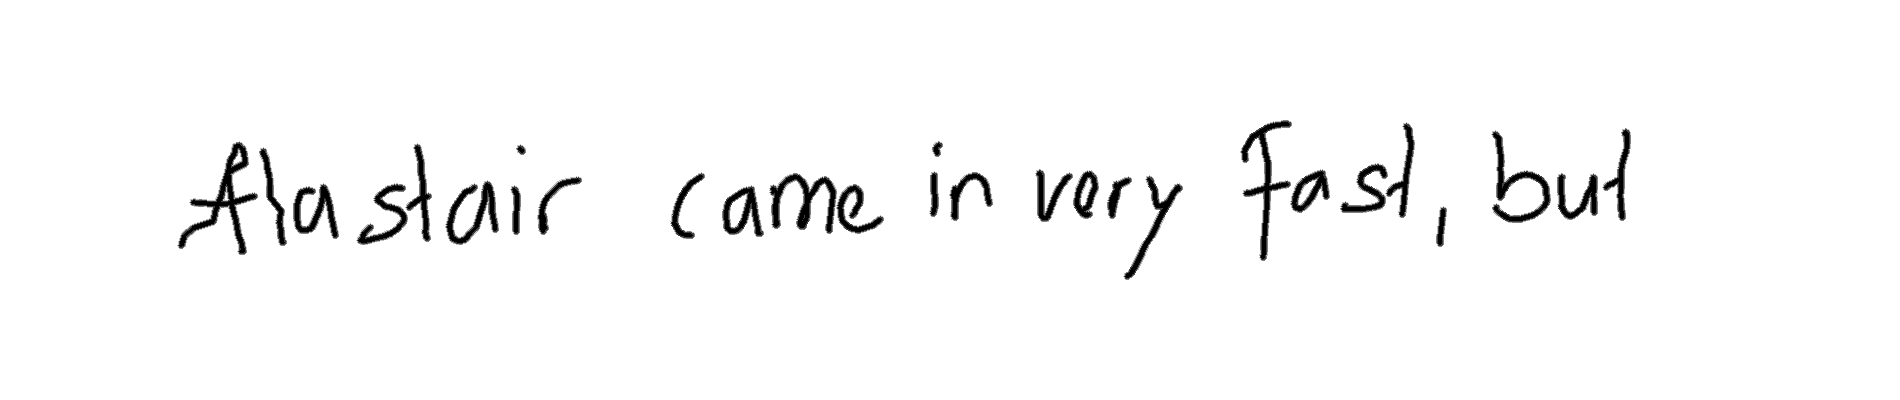 Alastair came in very fast, but